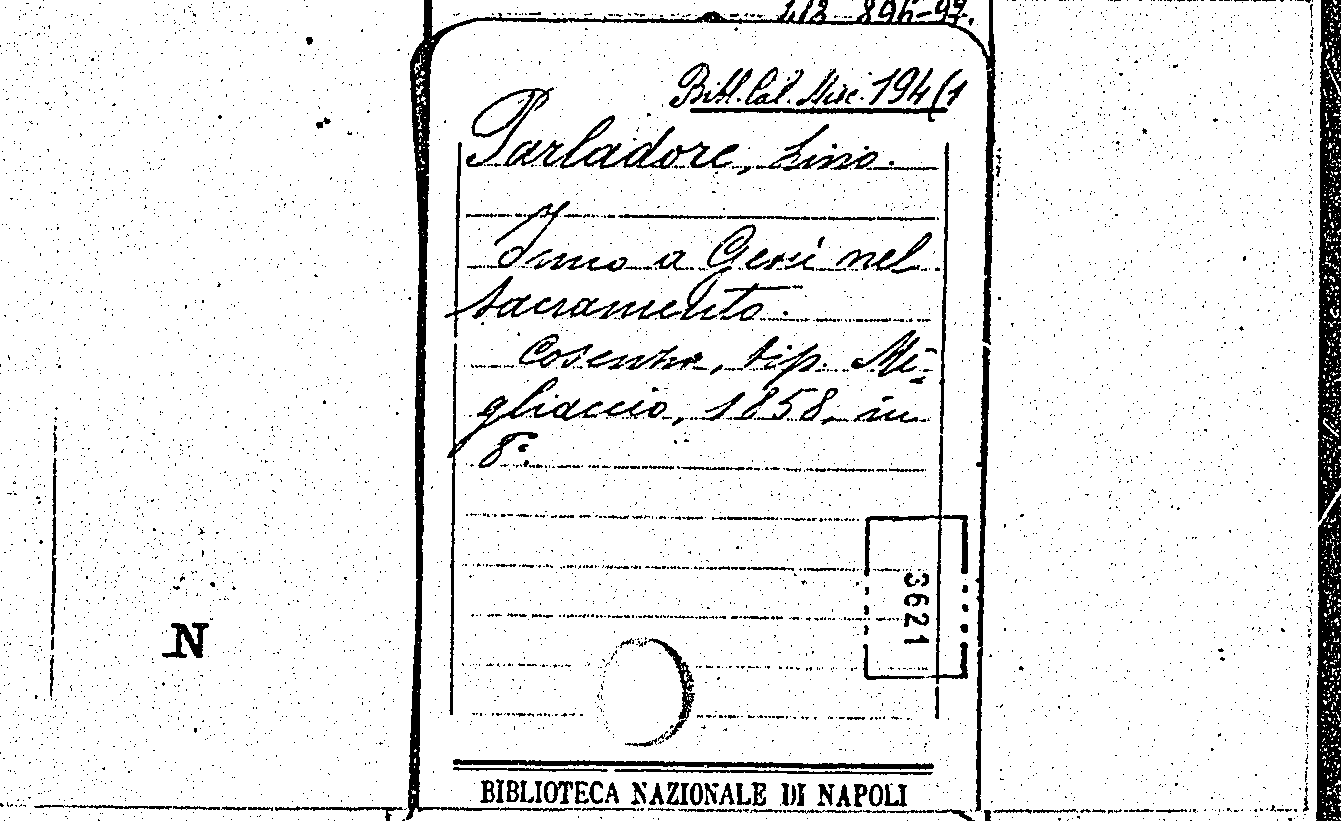 896-97.
Bibl. Cal. Misc. 194(1
Parladore, Lino.
Inno a Gesù nel
sacramento.
Cosenza, tip. Mi-
gliaccio, 1858, in
8°.
3621
N
BIBLIOTECA NAZIONALE DI NAPOLI